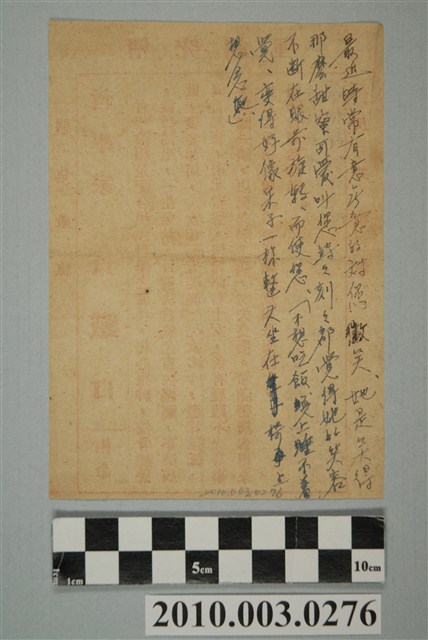 最近時常有意無意的對您微笑、她是笑得
那麼甜蜜可愛叫您時々刻々都覺得她的笑容
不斷在眼前旋轉、而使您、「不想吃飯晚上睡不著
覺、變得好像呆子一樣整天坐在椅子上
想念她」
2010.003.0276
1cm
5cm
10cm
2010.003.0276